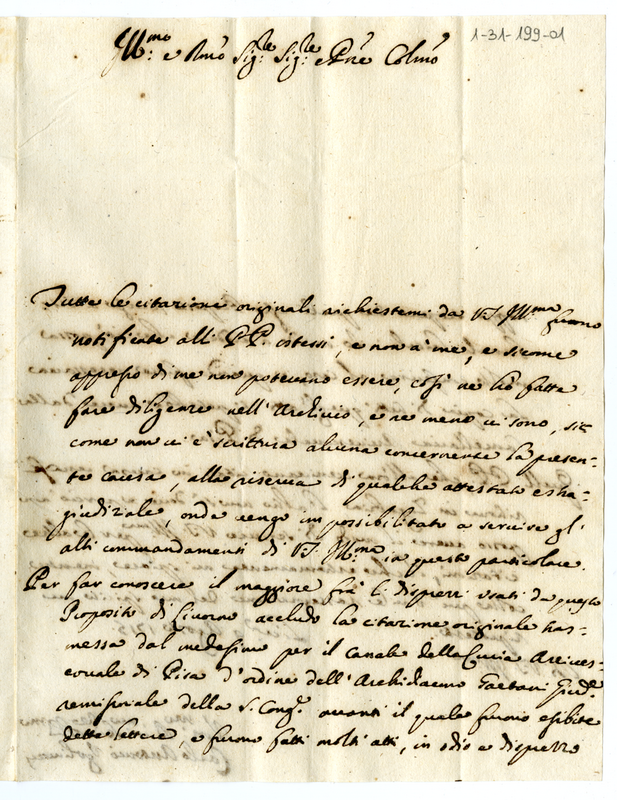 1-31-199-01
Ill:mo e Rmo Sig:re Sig:re e Pne Colmo
Tutte le citazione originali richiestemi da VS Ill:ma furono
notificate alli PP. istessi, e non a me, e sicome
appresso di me non potevano essere, così ne hò fatte
fare diligenze nell'Archivio, e ne meno vi sono, sic
come non vi è scrittura alcuna concernente la presen=
te causa, alla riserva di qualche attestato estra=
giudiziale, onde vengo impossibilitato a servire gl'
alti commandamenti di VS. Ill:ma in questo particolare.
Per far conoscere il maggiore frà li disprezzi usati da questo
Proposito di Livorno accludo la citazione originale tras=
messa dal medesimo per il canale della Curia Arcives=
covale di Pisa d'ordine dell'Archidiacono Gaetani Giud:e
remissoriale della S. Cong:e avanti il quale furono esibite
dette lettere, e furono fatti molti atti, in odio e disprezzo